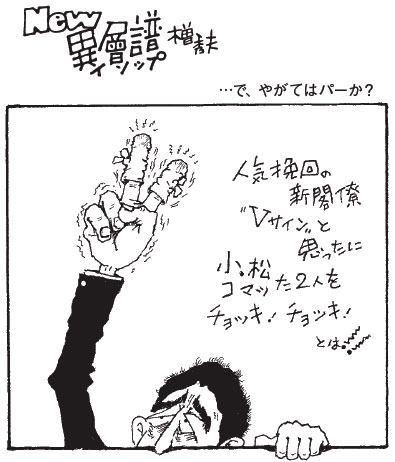 New
異層譜
イソップ
…で、やがてはパーか?
人気挽回の
新閣僚
“Vサイン„と
思ったに
小・松
コマッた2人を
チョッキ!チョッキ!
とは